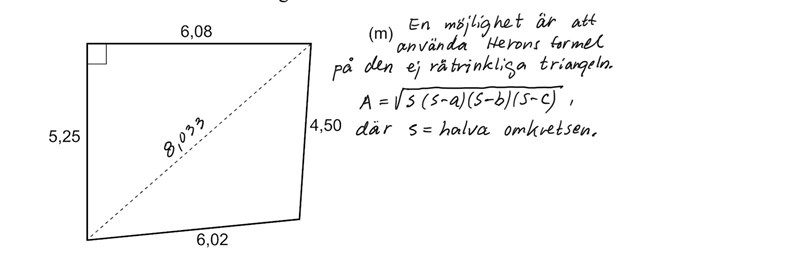 6,08
(m)
En möjlighet är att
använda Herons formel
på den ej rätvinkliga triangeln.
A = √s(s-a)(s-b)(s-c) ,
där s = halva omkretsen.
5,25
8,033
4,50
6,02